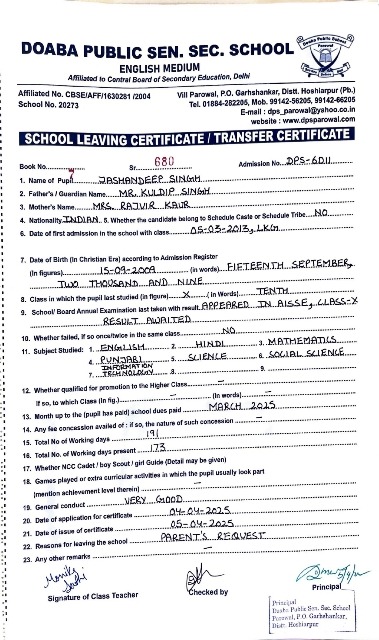 DOABA PUBLIC SEN. SEC. SCHOOL
ENGLISH MEDIUM
Affiliated to Central Board of Secondary Education, Delhi
Affiliated No. CBSE/AFF/1630281 /2004
School No. 20273
Vill Parowal, P.O. Garhshankar, Distt. Hoshiarpur (Pb.)
Tel. 01884-282205, Mob. 99142-66205, 99142-66205
E-mail : dps_parowal@yahoo.co.in
website : www.dpsparowal.com
SCHOOL LEAVING CERTIFICATE / TRANSFER CERTIFICATE
Book No. Sr. 680 Admission No. DPS-6011
1. Name of Pupil JASHANDEEP SINGH
2. Father's / Guardian Name MR. KULDIP SINGH
3. Mother's Name MRS. RAJVIR KAUR
4. Nationality INDIAN 5. Whether the candidate belong to Schedule Caste or Schedule Tribe NO
6. Date of first admission in the school with class 05-03-2013, LKG
7. Date of Birth (In Christian Era) according to Admission Register
(In figures) 15-09-2009 (in words) FIFTEENTH SEPTEMBER,
TWO THOUSAND AND NINE
8. Class in which the pupil last studied (in figure) X (In Words) TENTH
9. School/ Board Annual Examination last taken with result APPEARED IN AISSE, CLASS-X
RESULT AWAITED
10. Whether failed, If so once/twice in the same class NO
11. Subject Studied: 1. ENGLISH 2. HINDI 3. MATHEMATICS
4. PUNJABI 5. SCIENCE 6. SOCIAL SCIENCE
7. INFORMATION TECHNOLOGY 8. 9.
12. Whether qualified for promotion to the Higher Class –
If so, to which Class (in fig.) – (In Words) –
13. Month up to the (pupil has paid) school dues paid MARCH 2025
14. Any fee concession availed of : if so, the nature of such concession –
15. Total No of Working days 191
16. Total No. of Working days present 173
17. Whether NCC Cadet / boy Scout / girl Guide (Detail may be given)
18. Games played or extra curricular activities in which the pupil usually took part
(mention achievement level therein) –
19. General conduct VERY GOOD
20. Date of application for certificate 04-04-2025
21. Date of issue of certificate 05-04-2025
22. Reasons for leaving the school PARENT'S REQUEST
23. Any other remarks –
Signature of Class Teacher
Checked by
Principal
Principal
Doaba Public Sen. Sec. School
Parowal, P.O. Garhshankar,
Distt. Hoshiarpur